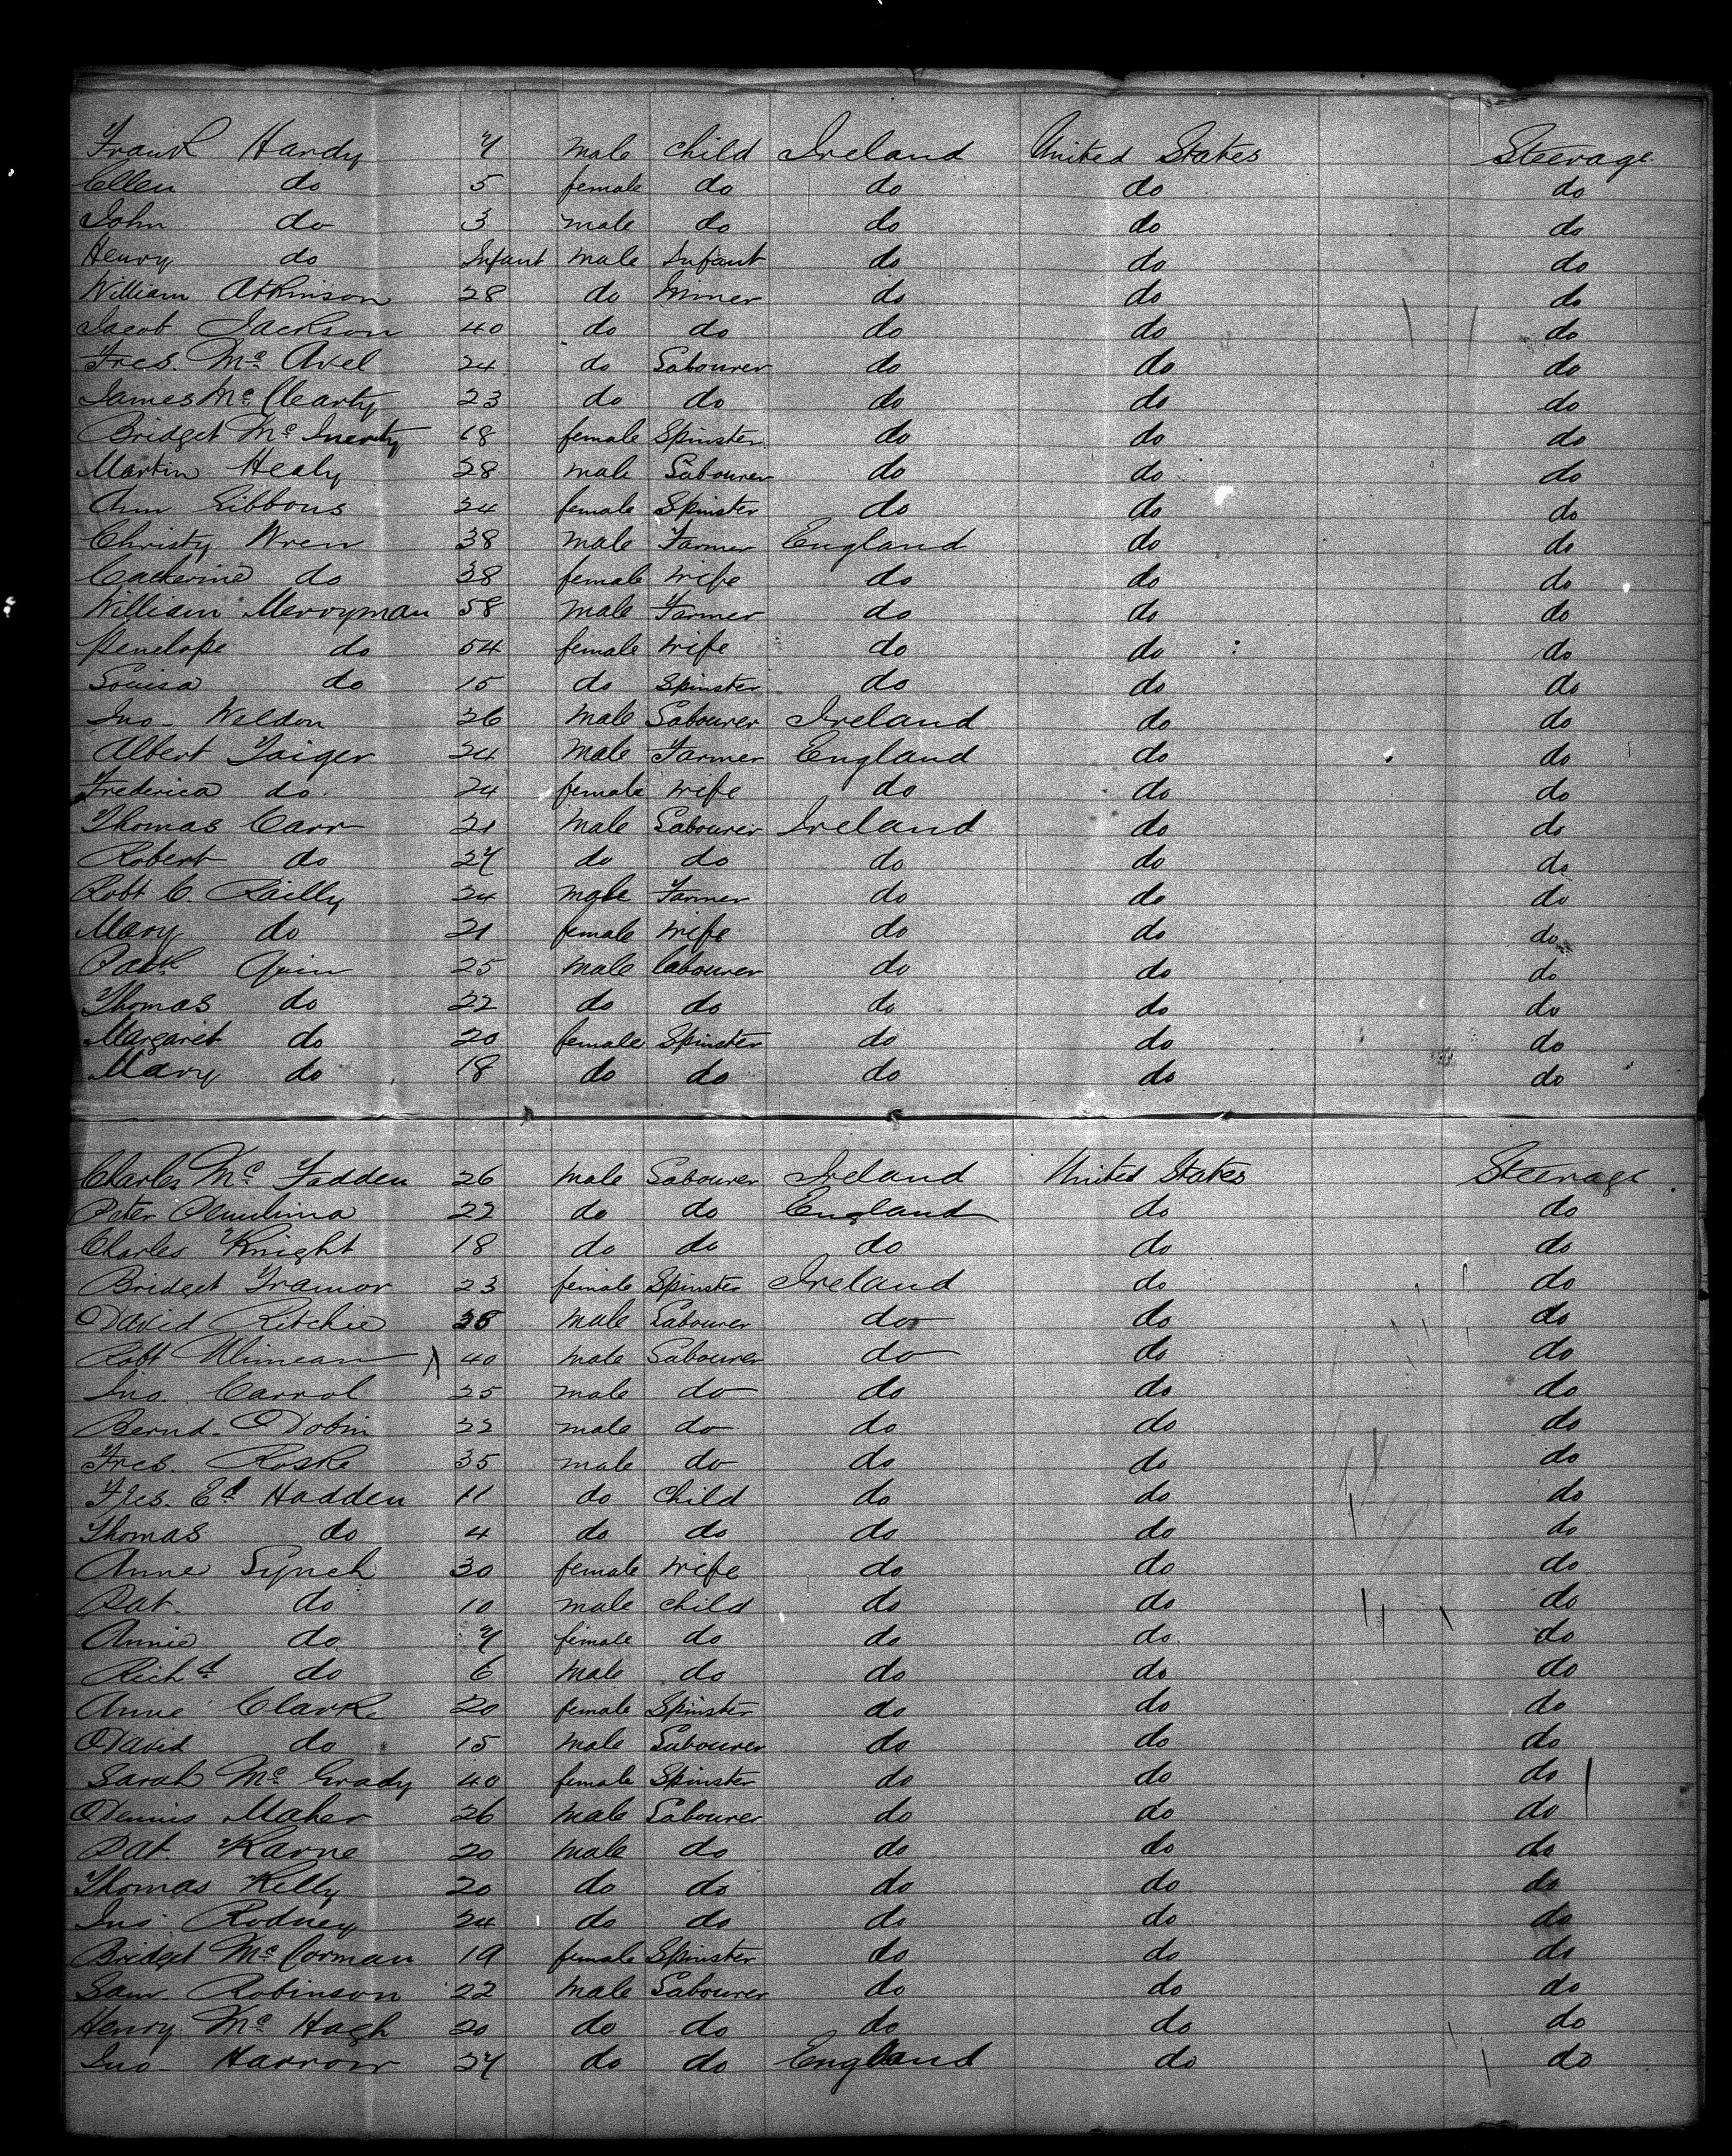 Frank Hardy 7 male child Ireland United States Steerage
Ellen do 5 female do do do do
John do 3 male do do do do
Henry do Infant male Infant do do do
William Atkinson 28 do miner do do do
Jacob Jackson 40 do do do do do
Frcs. Mc Avel 24 do Labourer do do do
James Mc Clearty 23 do do do do do
Bridget Mc Inerty 18 female Spinster do do do
Martin Healy 28 male Labourer do do do
Ann Gibbons 24 female Spinster do do do
Christy Wren 38 male Farmer England do do
Catherine do 38 female wife do do do
William Merryman 58 male Farmer do do do
Penelope do 54 female wife do do do
Louisa do 15 do Spinster do do do
Jno- Weldon 26 male Labourer Ireland do do
Albert Taiger 24 male Farmer England do do
Frederica do 24 female wife do do do
Thomas Carr 21 male Labourer Ireland do do
Robert do 27 do do do do do
Robt C. Railly 24 male Farmer do do do
Mary do 21 female wife do do do
Patk Quin 25 male labourer do do do
Thomas do 22 do do do do do
Margaret do 20 female Spinster do do do
Mary do 18 do do do do do
Charles Mc Fadden 26 male Labourer Ireland United States Steerage
Peter 22 do do England do do
Charles Knight 18 do do do do do
Bridget Tramor 23 female Spinster Ireland do do
David Ritchie 38 male Labourer do do do
Robt 40 male Labourer do do do
Jno. Carrol 25 male do do do do
Bernd. Dobin 22 male do do do do
Frcs. Roske 35 male do do do do
Frcs. Ed Hadden 11 do child do do do
Thomas do 4 do do do do do
Anne Lynch 30 female wife do do do
Pat. do 10 male child do do do
Annie do 7 female do do do do
Richd do 6 male do do do do
Anne Clarke 20 female Spinster do do do
David do 15 male Labourer do do do
Sarah Mc Grady 40 female Spinster do do do
Dennis Maher 26 male Labourer do do do
Pat. Karne 20 male do do do do
Thomas Kelly 20 do do do do do
Jno. Rodney 24 do do do do do
Bridget Mc Corman 19 female Spinster do do do
Sam. Robinson 22 male Labourer do do do
Henry Mc Hagh 20 do do do do do
Jno- Harrow 27 do do England do do